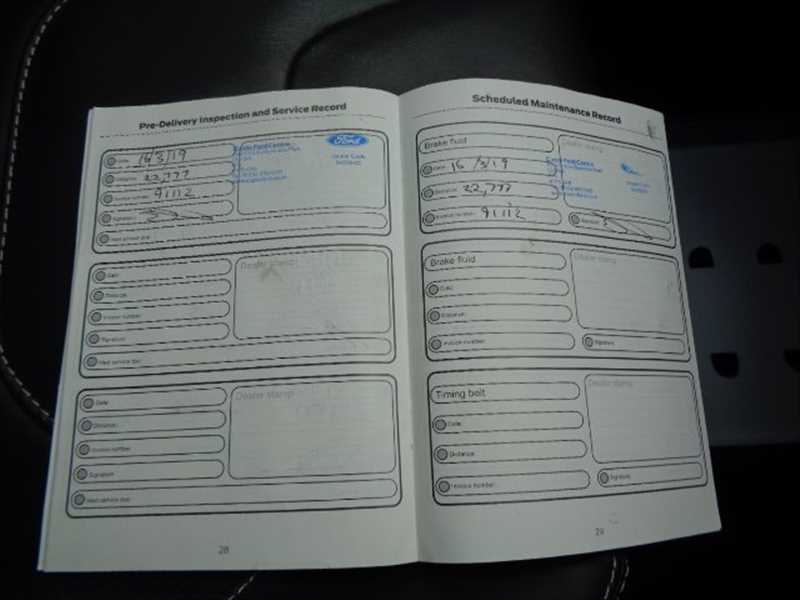 Pre-Delivery Inspection and Service Record
Date 15/3/19
Distance 22,777
Invoice number 91112
Signature
Next service due
Ford
Dealer Code
Date
Distance
Invoice number
Signature
Next service due
Dealer stamp
Date
Distance
Invoice number
Signature
Next service due
Dealer stamp
28
Scheduled Maintenance Record
Brake fluid
Date 15/3/19
Distance 22,777
Invoice number 91112
Dealer stamp
Signature
Brake fluid
Date
Distance
Invoice number
Dealer stamp
Signature
Timing belt
Date
Distance
Invoice number
Dealer stamp
Signature
29